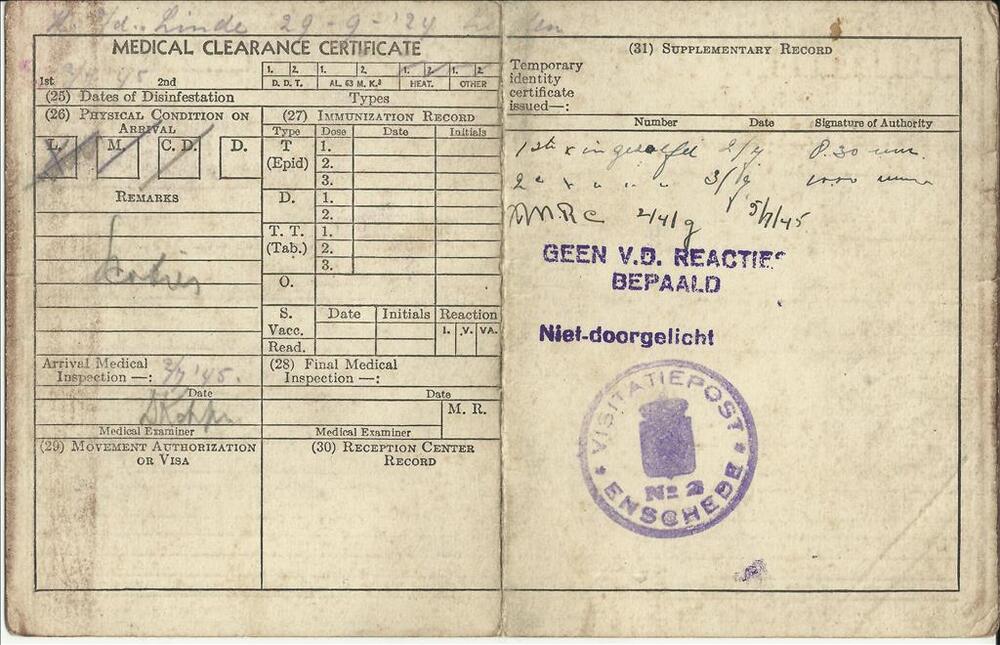 v/d. Linde 29-9-'24
MEDICAL CLEARANCE CERTIFICATE
1st 2/7 '45 2nd
1. 2. 1. 2. 1. 2. 1. 2.
D. D. T. AL. 63 M. K.³ HEAT. OTHER
(25) Dates of Disinfestation Types
(26) PHYSICAL CONDITION ON ARRIVAL
L. M. C. D. D.
REMARKS
Scabies
Arrival Medical
Inspection —: 2/7 '45.
Date
Medical Examiner
(27) IMMUNIZATION RECORD
Type Dose Date Initials
T
(Epid)
1.
2.
3.
D.
1.
2.
T. T.
(Tab.)
1.
2.
3.
O.
S. Date Initials Reaction
Vacc. I. V. VA.
Read.
(28) Final Medical
Inspection —:
Date
M. R.
Medical Examiner
(29) MOVEMENT AUTHORIZATION
OR VISA
(30) RECEPTION CENTER
RECORD
(31) SUPPLEMENTARY RECORD
Temporary
identity
certificate
issued—:
Number Date Signature of Authority
1ste x ingesmeerd 2/7 8.30
2e x " " " 3/7
5/7/45
GEEN V.D. REACTIES
BEPAALD
Niet-doorgelicht
VISITATIEPOST
No 2
ENSCHEDE